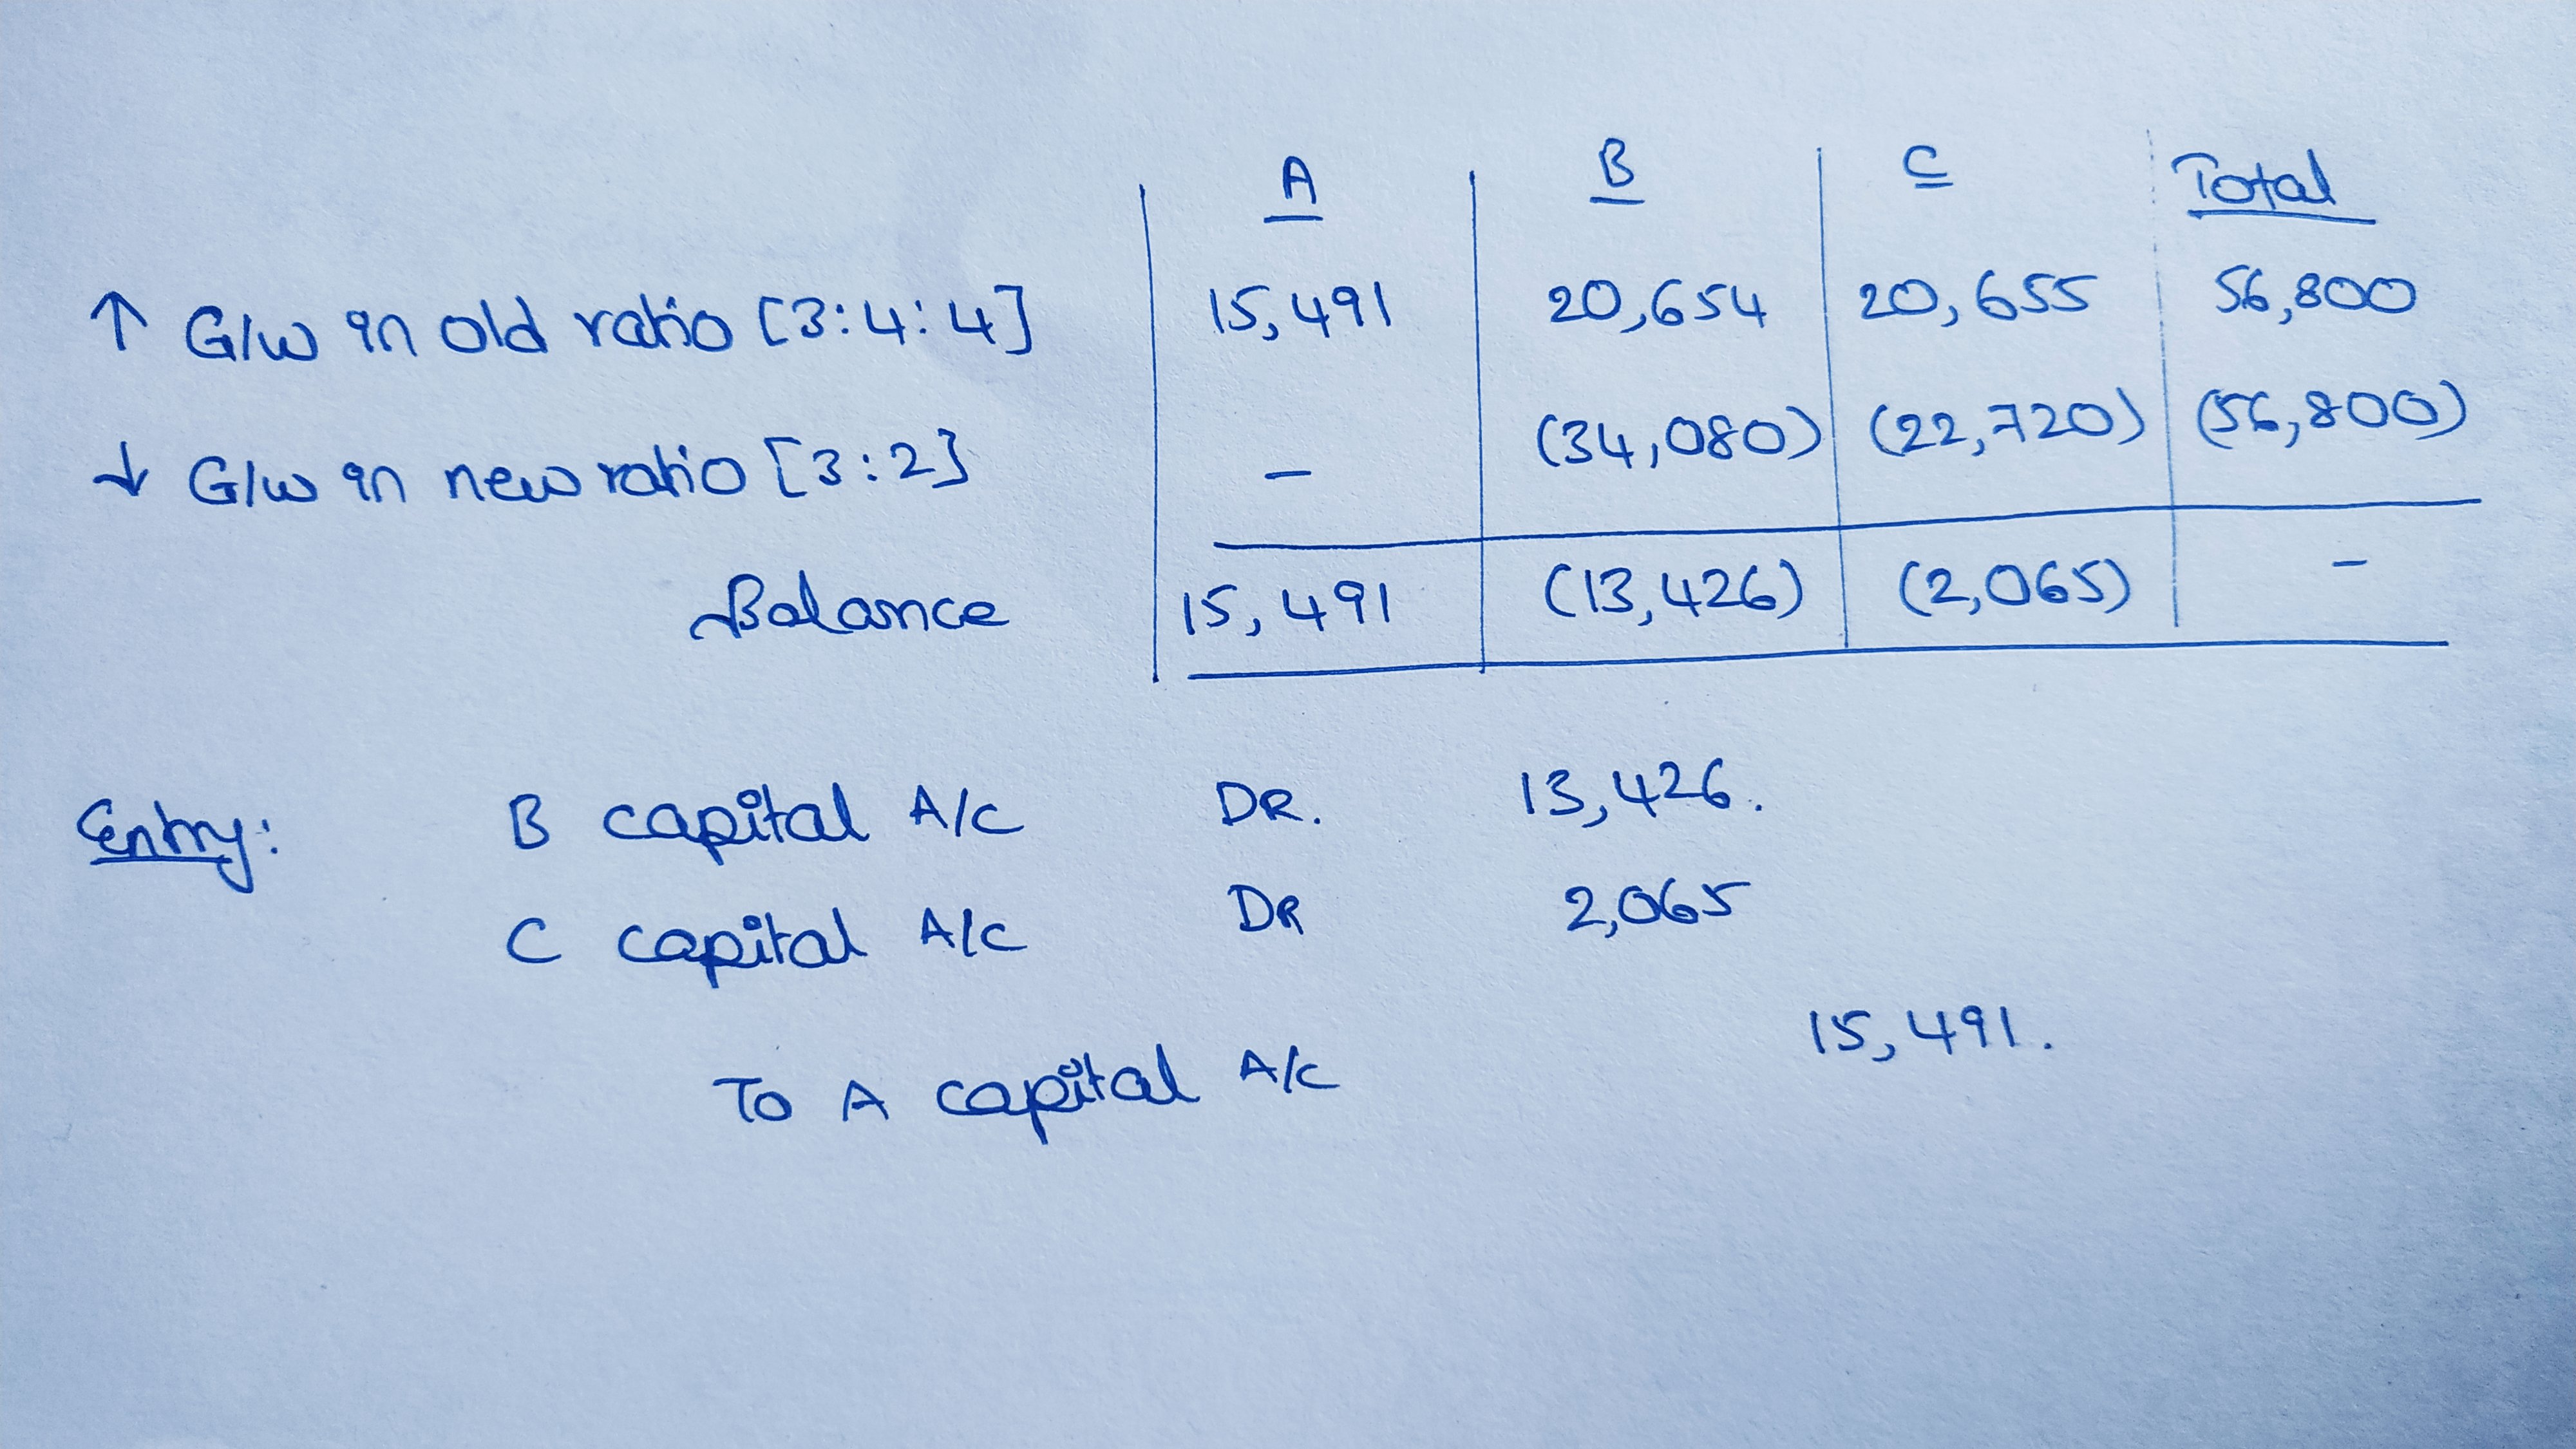 A B C Total
↑ G/w in old ratio [3:4:4] 15,491 20,654 20,655 56,800
↓ G/w in new ratio [3:2] - (34,080) (22,720) (56,800)
Balance 15,491 (13,426) (2,065) -
Entry: B capital A/c DR. 13,426.
C capital A/c DR 2,065
To A capital A/c 15,491.